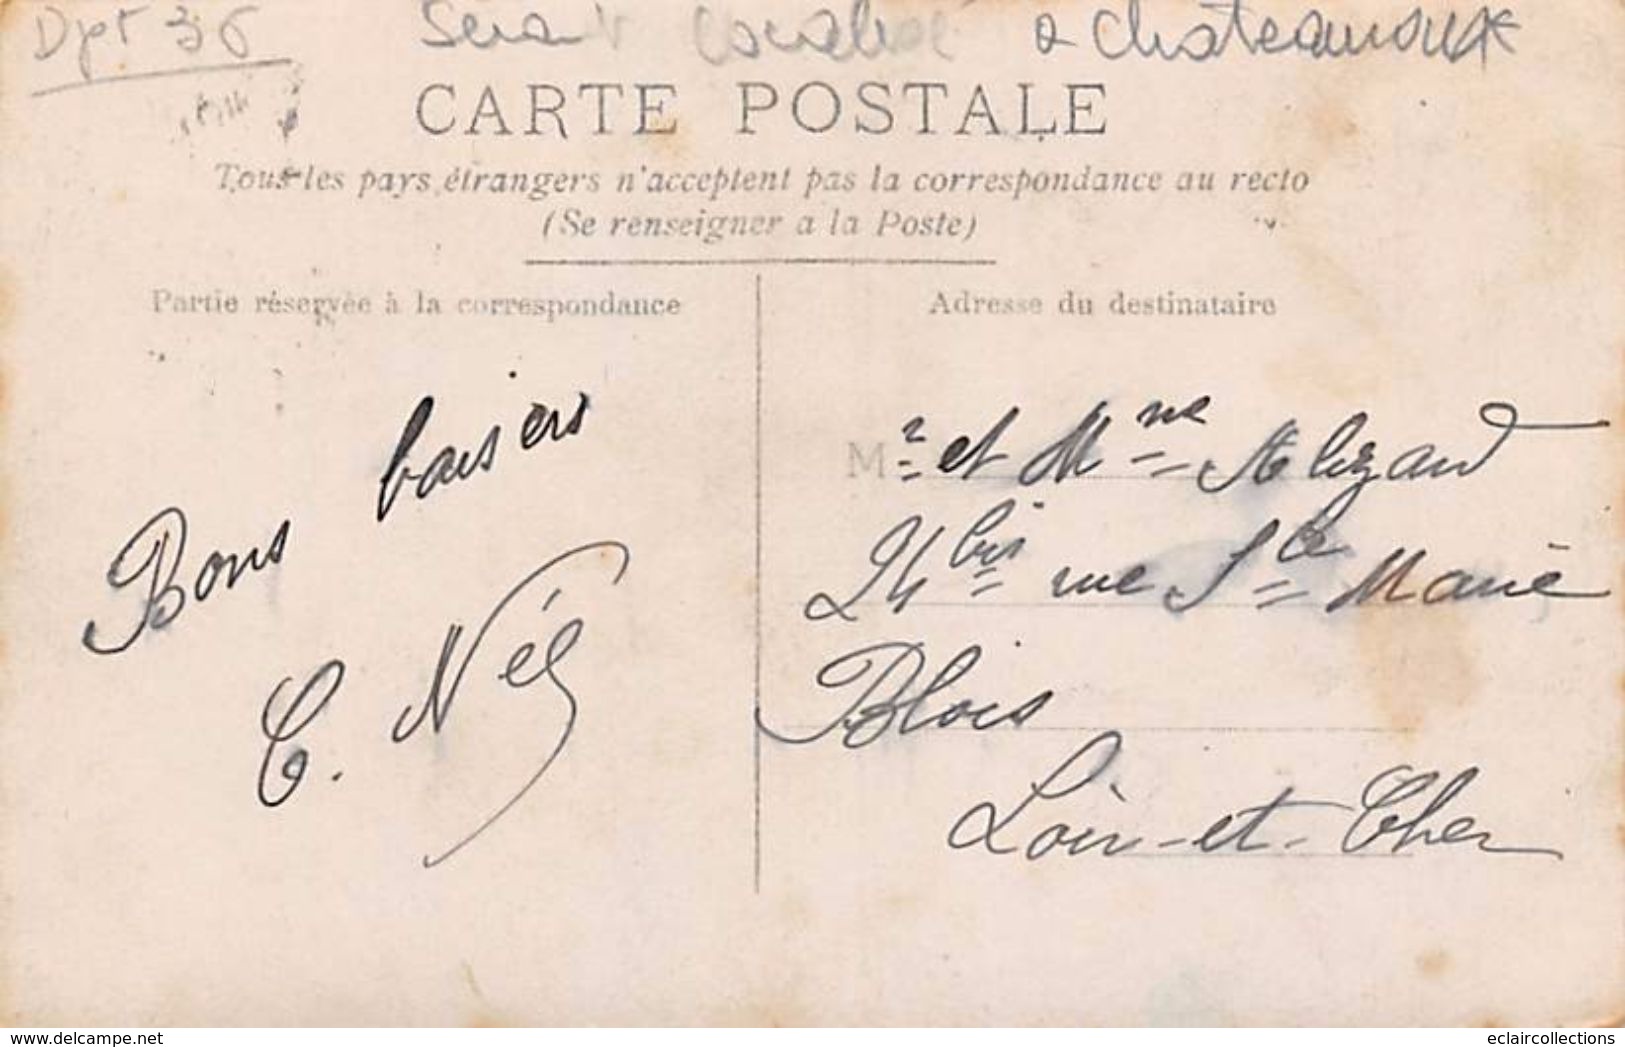 Dpt 36
Serait localisé a Chateauroux
CARTE POSTALE
Tous les pays étrangers n'acceptent pas la correspondance au recto
(Se renseigner a la Poste)
Partie réservée à la correspondance
Adresse du destinataire
Bons baisers
C. Nél
Mr et Mme Alizard
24 bis rue Ste Marie
Blois
Loir-et-Cher
delcampe.net
eclaircollections